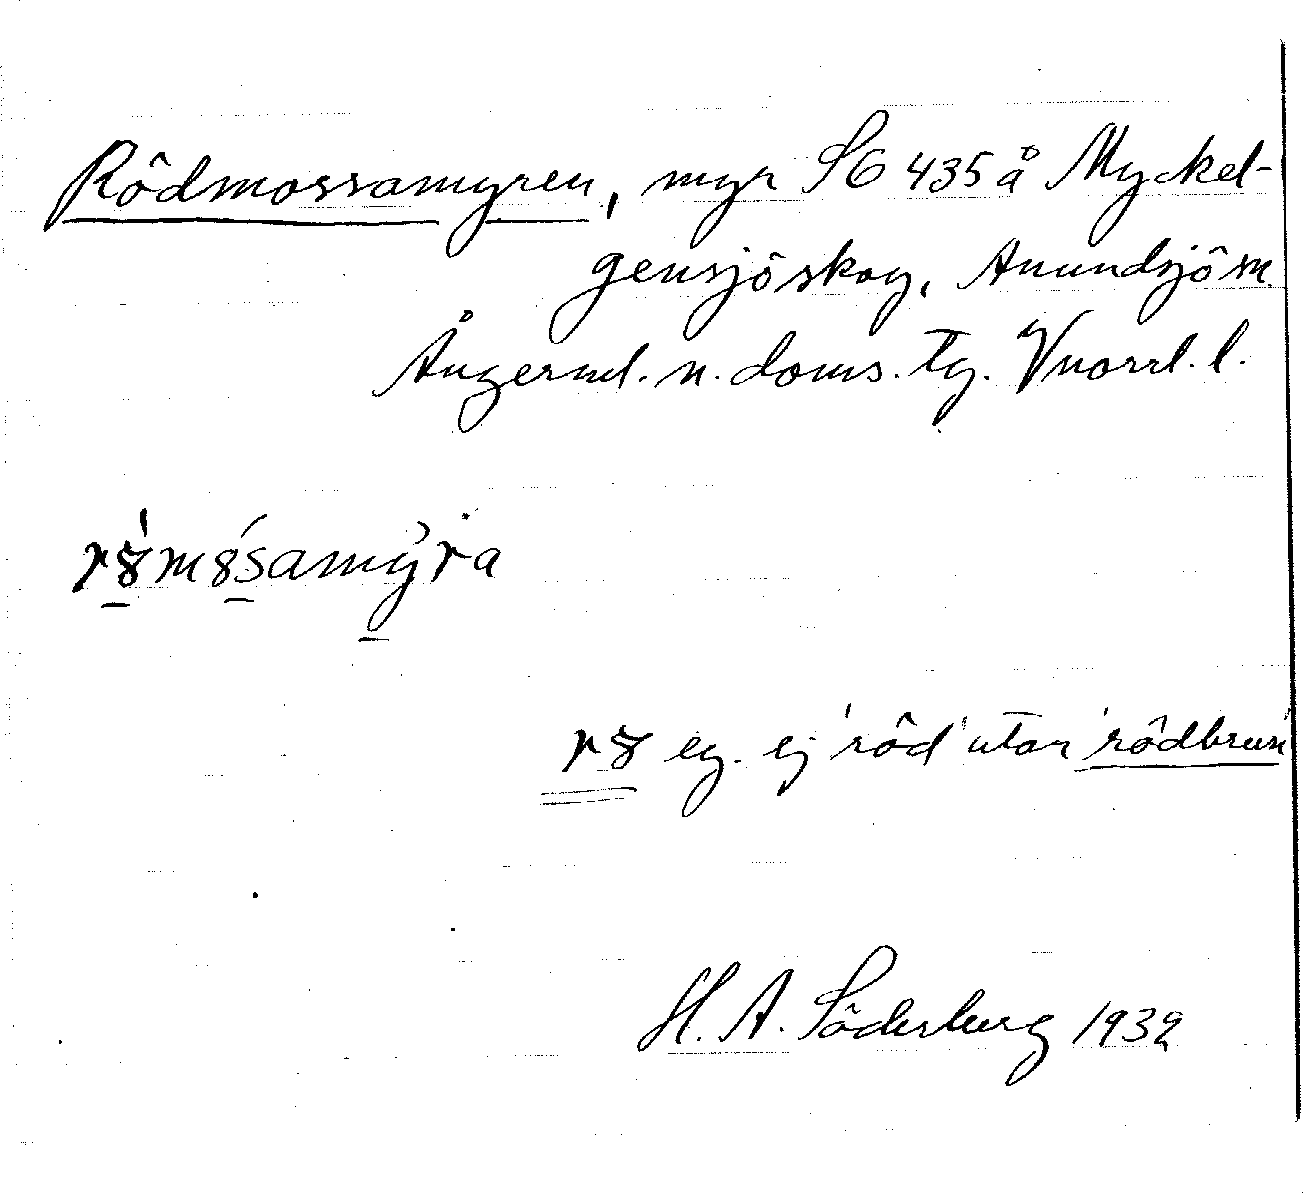 Rödmossamyren, myr S6 435 å Myckel-
gensjö skog, Anundsjö sn
Ångerml. n. doms. tg. Vnorrl. l.
r8̀m8́samy̆ra
r8 eg. ej 'röd' utan 'rödbrun'
H. A. Söderberg 1932